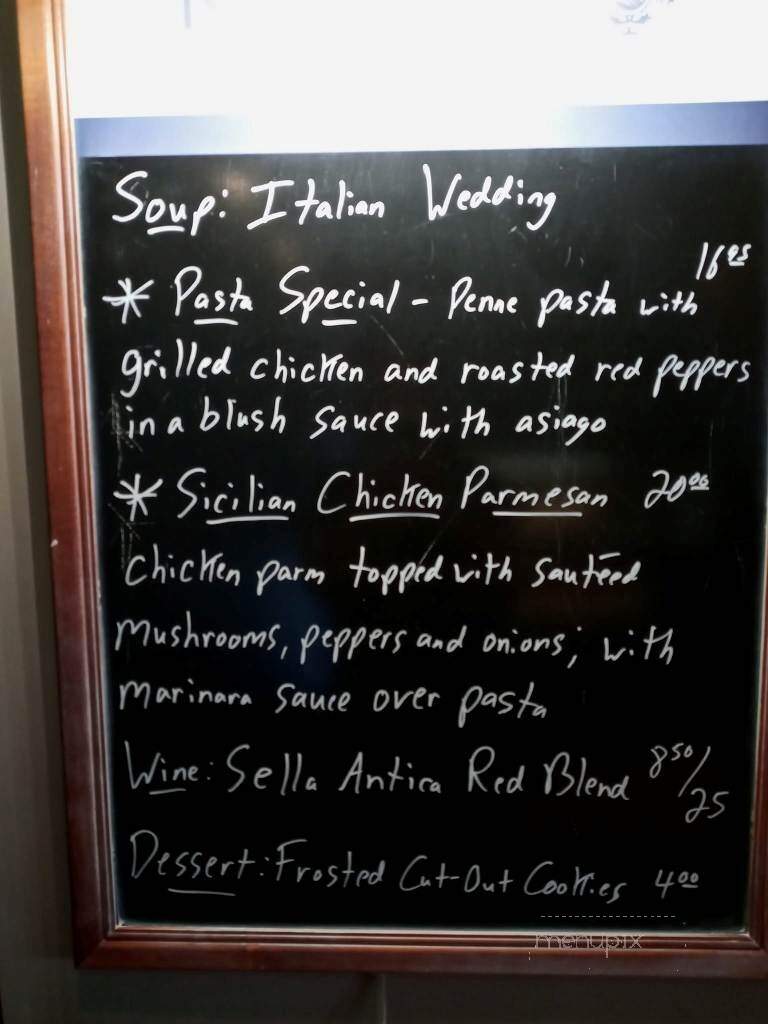 Soup: Italian Wedding
16 95
* Pasta Special - Penne pasta with
grilled chicken and roasted red peppers
in a blush sauce with asiago
* Sicilian Chicken Parmesan 20 00
Chicken parm topped with sautéed
mushrooms, peppers and onions; with
marinara sauce over pasta
Wine: Sella Antica Red Blend 8 50/25
Dessert: Frosted Cut-Out Cookies 4 00
menupix